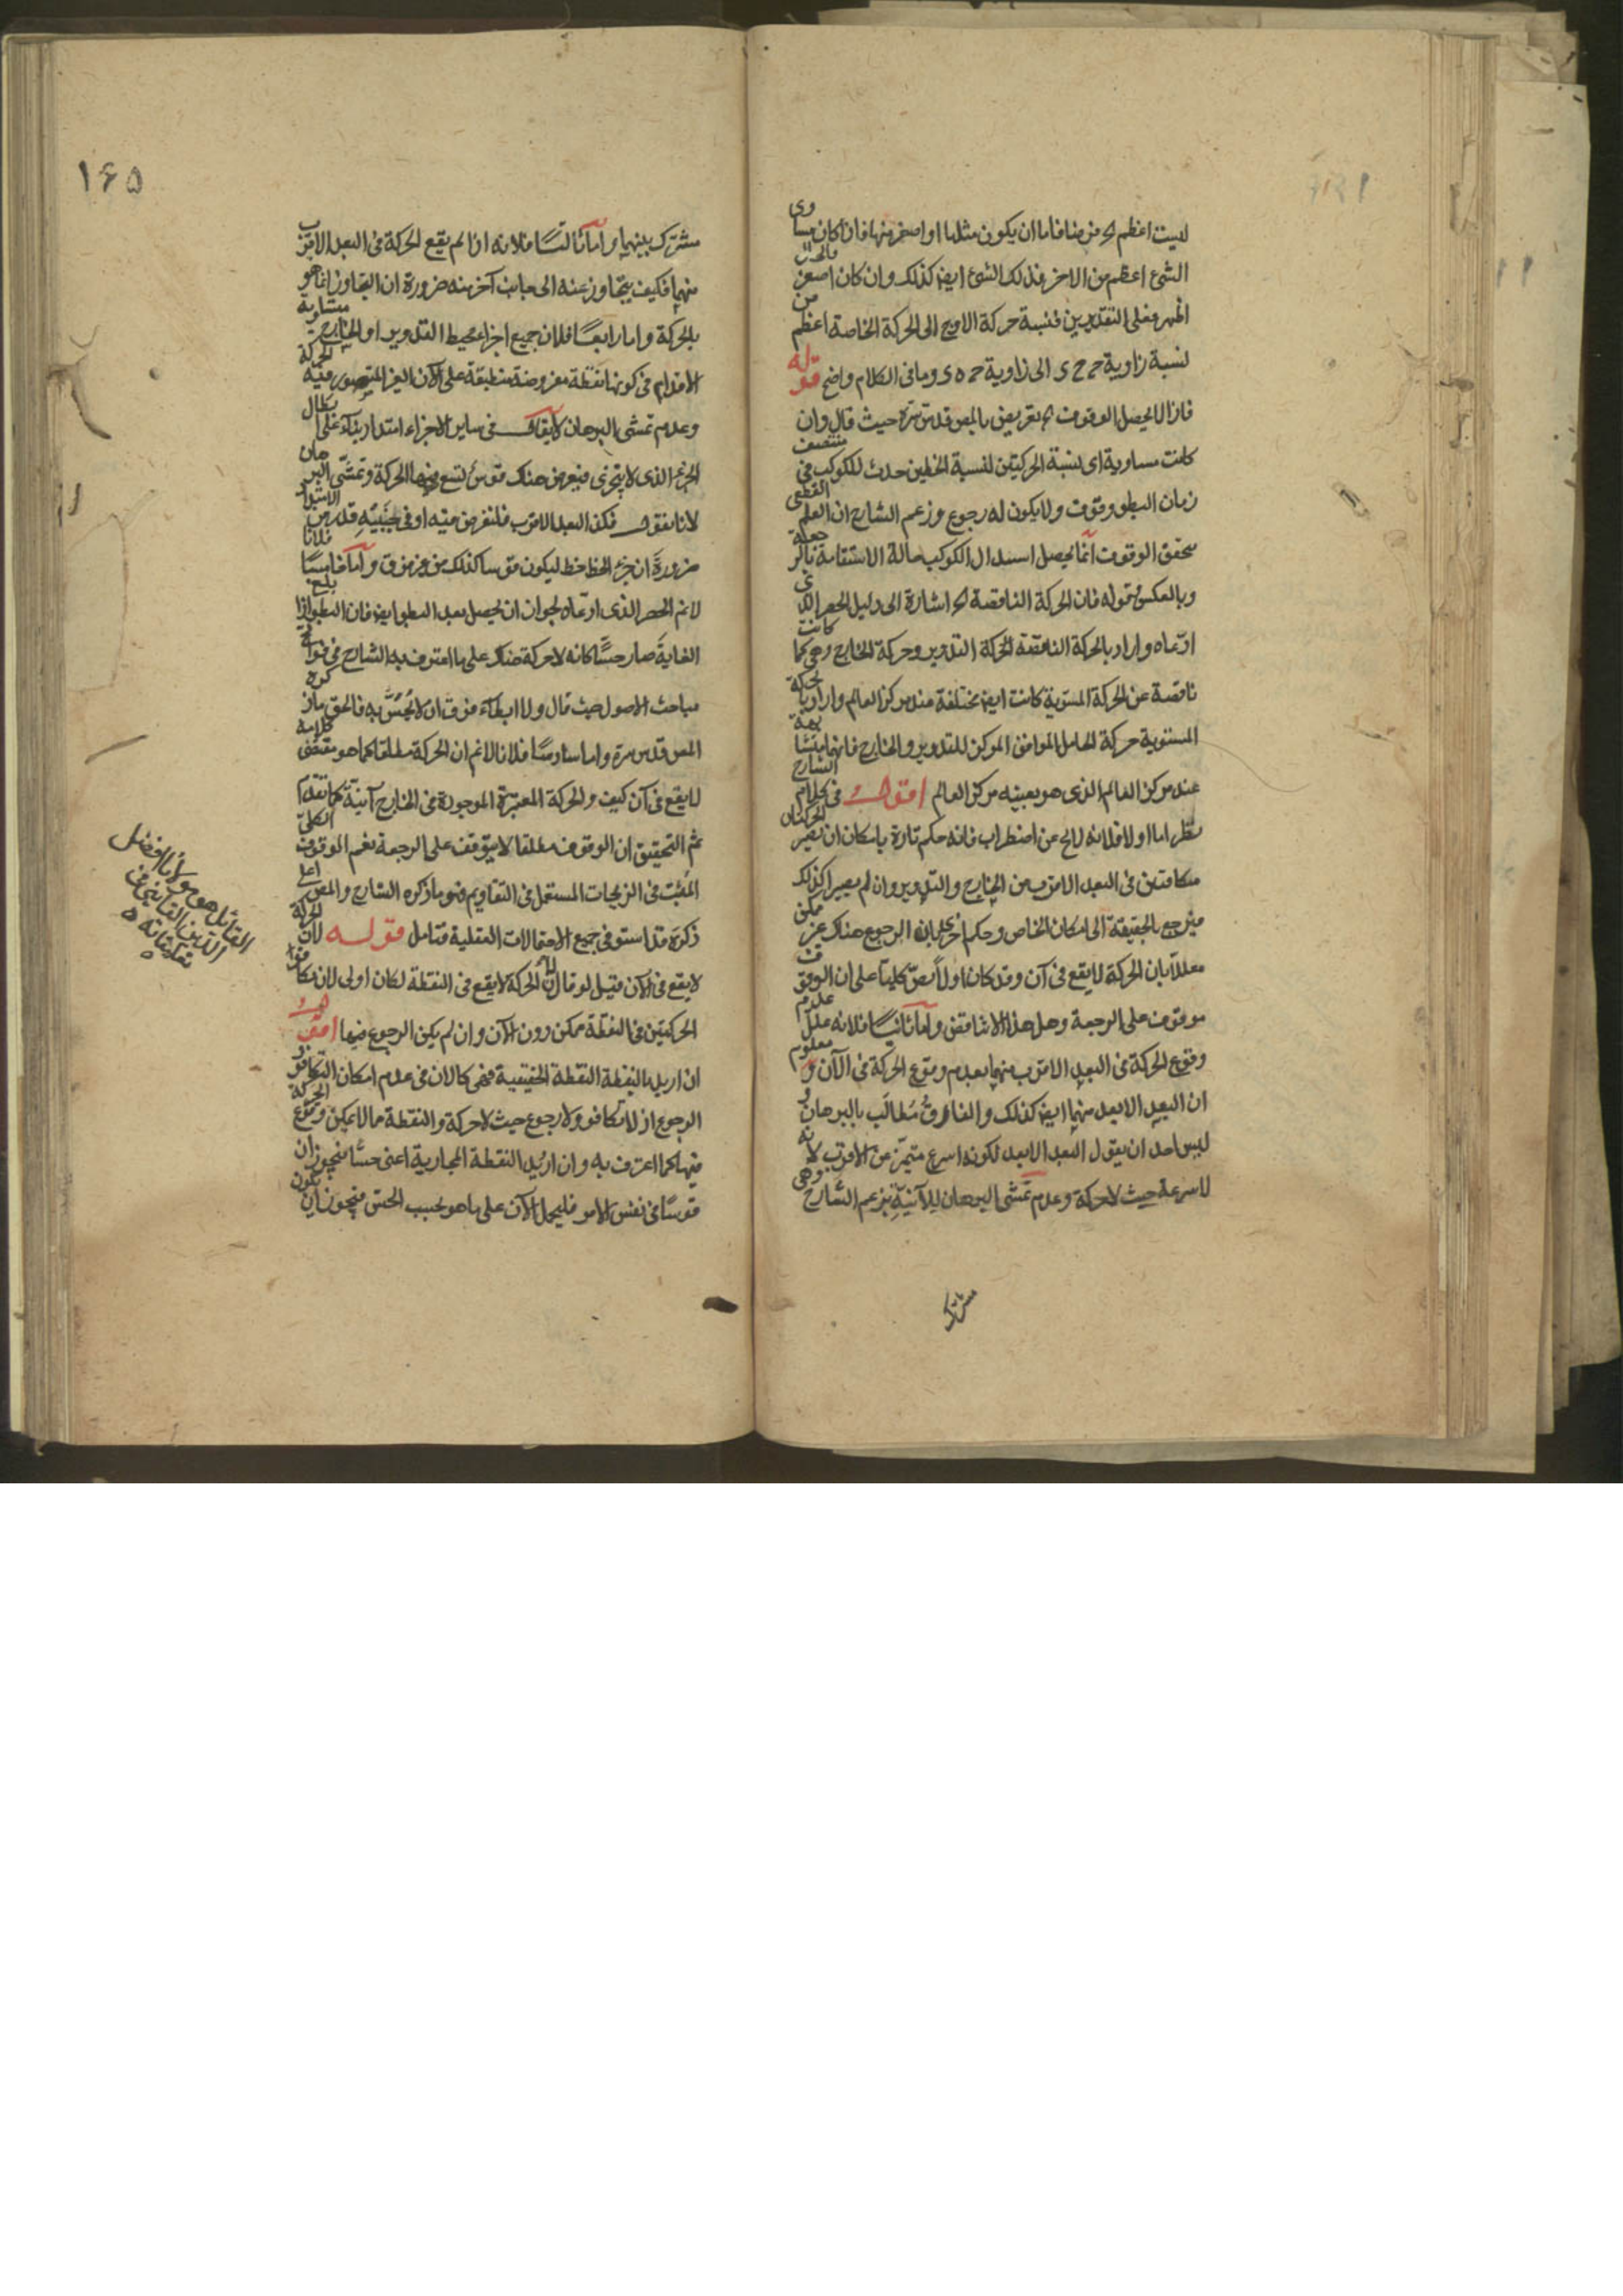 ليست اعظم الخ فرضنا فاما ان يكون مثلها او اصغر منها فان كان مساوى
الشئ اعظم من الاخر فذلك الشئ ايض كذلك وان كان اصغر فالحال
اظهر فعلى التقديرين فنسبة حركة الاوج الى الحركة الخاصة اعظم من
نسبة زاوية ح ح ى الى زاوية ح ه ى وما فى الكلام واضح قوله
فاذا لا يحصل الوقوف الخ تعريض بالمص قدس سره حيث قال وان
كانت مساوية اى نسبة الحركتين لنسبة الخطين حدث للكوكب فى منتصف
زمان البطو وقوف ولا يكون له رجوع وزعم الشارح ان العلم القطعى
بتحقق الوقوف انما يحصل استبدال الكوكب حالة الاستقامة بالرجعة
وبالعكس قوله فان الحركة الناقصة الخ اشارة الى دليل الحصر الذى
ادعاه واراد بالحركة الناقصة الحركة التدوير وحركة الخارج وهى كما كانت
ناقصة عن الحركة المستوية كانت ايض مختلفة عند مركز العالم واراد بالحركة
المستوية حركة الحامل الموافق المركز للتدوير والخارج فانها متشابهة
عند مركز العالم الذى هو بعينه مركز العالم اقول فى كلام الشارح
نظر اما اولا فلانه لا يخ عن اضطراب فانه حكم تارة بامكان ان تصير الحركتان
متكافئتين فى البعد الاقرب من الخارج والتدوير وان لم يصيرا كذلك
فيرجع بالحقيقة الى امكان الخاص وحكم اخرى بان الرجوع هناك غير ممكن
معللا بان الحركة لا يقع فى آن وقد كان اولا نص كليتا على ان الوقوف
موقوف على الرجعة وهل هذا الا تناقض واما ثانيا فلانه علل عدم
وقوع الحركة فى البعد الاقرب منهما بعدم وقوع الحركة فى الآن ومعلوم
ان البعد الابعد منهما ايض كذلك والفارق مطالب بالبرهان و
ليس لاحد ان يقول البعد الابعد لكونه اسرع متميز عن الاقرب لانه
لا سرعة حيث لا حركة وعدم تمشى البرهان للآنية بزعم الشارح وهى
مشترك
١٦٥
مشترك بينهما واما ثالثا فلانه اذا لم يقع الحركة فى البعد الاقرب
منهما فكيف يتجاوز عنه الى جانب آخر منه ضرورة ان التجاوز انما هو
بالحركة واما رابعا فلان جميع اجزاء محيط التدوير او الخارج متساوية
الاقدام فى كونها نقطة مفروضة منطبقة على الآن الغير المتصور فيه الحركة
وعدم تمشى البرهان لا يقال فى ساير الاجزاء امتداد بناء على ابطال
الجزء الذى لا يتجزى فيفرض هناك قوس تسع فيها الحركة وتمشى البرهان
لانا نقول فكذا البعد الاقرب فلنفرض فيه او فى جنبيه قدر من الاستواء
ضرورة ان جزء الخط خط ليكون قوسا كذلك من غير فرق واما خامسا فلانا
لا نم الحصر الذى ادعاه لجواز ان يحصل بعد البطو ايض فان البطو اذا بلغ
الغاية صار حسا كانه لا حركة هناك على ما اعترف به الشارح فى فواتح
مباحث الاصول حيث قال ولا ابطاء فوق ان لا يحس به فالحق ما ذكره
المص قدس سره واما سادسا فلانا لا نم ان الحركة مطلقا كما هو مقتضى كلامه
لا يقع فى آن كيف والحركة المعتبرة الموجودة فى الخارج آنية كما تقدم
ثم التحقيق ان الوقوف مطلقا لا يتوقف على الرجعة نعم الوقوف الكلى
المثبت فى الزيجات المستعمل فى التقاويم فهو ما ذكره الشارح والمص اعلى
ذكره قد استوفى جميع الاحتمالات العقلية فتامل قوله لان الحركة
لا يقع فى الآن قيل لو قال لان الحركة لا يقع فى النقطة لكان اولى لان تكافؤ
الحركتين فى النقطة ممكن دون الآن وان لم يكن الرجوع فيها اقول
ان اريد بالنقطة النقطة الحقيقية فهى كالآن فى عدم امكان التكافؤ و
الرجوع اذ لا تكافؤ ولا رجوع حيث لا حركة والنقطة مما لا يمكن وقوع الحركة
فيها كما اعترف به وان اريد النقطة المجازية اعنى حسا فيجوز ان
قوسا فى نفس الامر فليحمل الآن على ما هو بحسب الحس فيجوز ان يكون
القائل هو مولانا افضل
الدين القاينى فى
تعليقاته